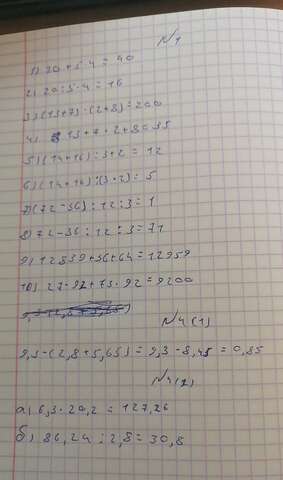 №1
1) 20+5·4=40
2) 20:5·4=16
3) (13+7)·(2+8)=200
4) 13+7·2+8=35
5) (14+16):3+2=12
6) (14+16):(3·2)=5
7) (72-36):12:3=1
8) 72-36:12:3=71
9) 12839+56+64=12959
10) 27·92+73·92=9200
№4(1)
9,3-(2,8+5,65)=9,3-8,45=0,85
№4(2)
а) 6,3·20,2=127,26
б) 86,24:2,8=30,8